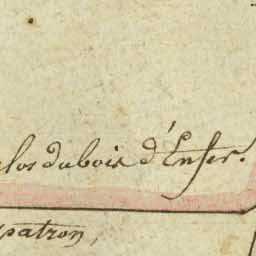 clos dubois d'Enfer.
patron,